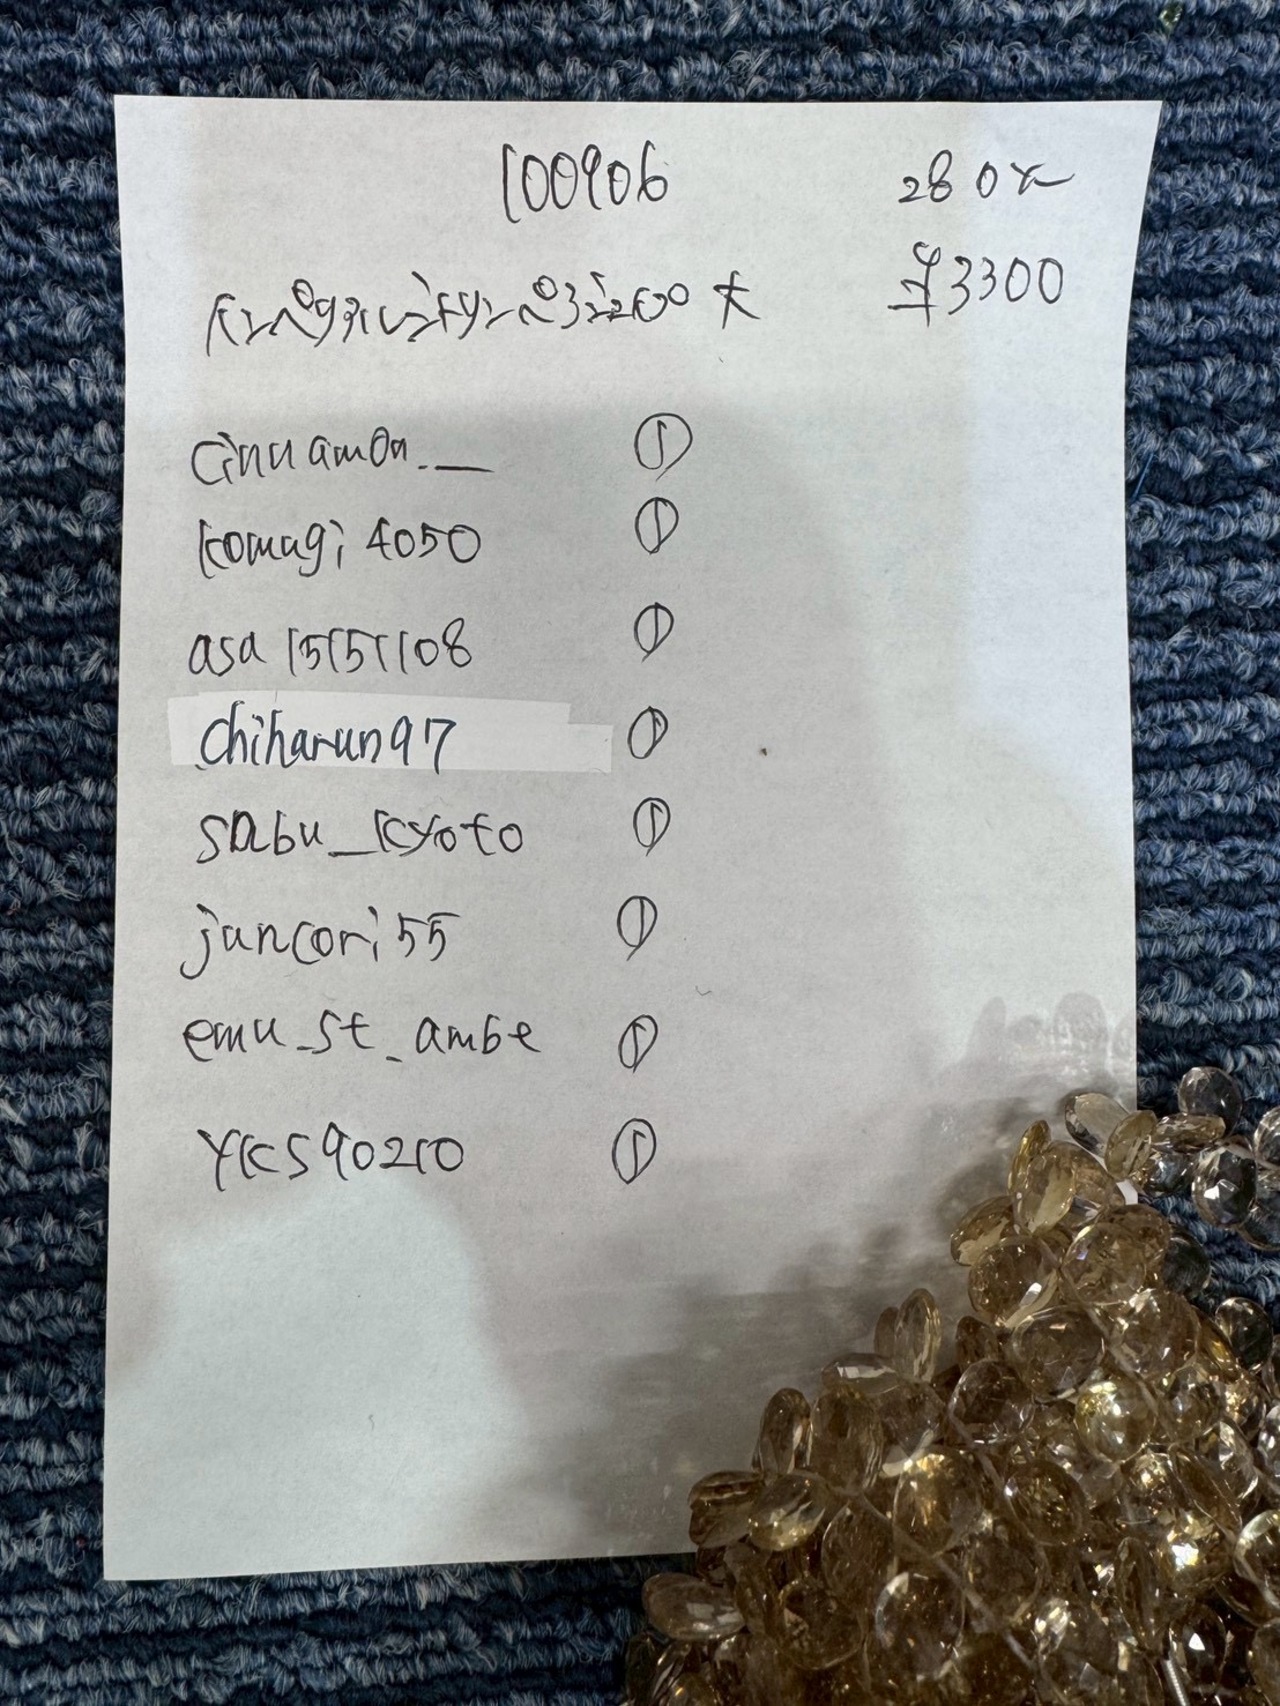 100906
280
¥3300
大
cinnamon.__ ①
komugi4050 ①
asa15151108 ①
chiharun97 ①
sabu_kyoto ①
juncori55 ①
emu_st_ambe ①
YKS90210 ①